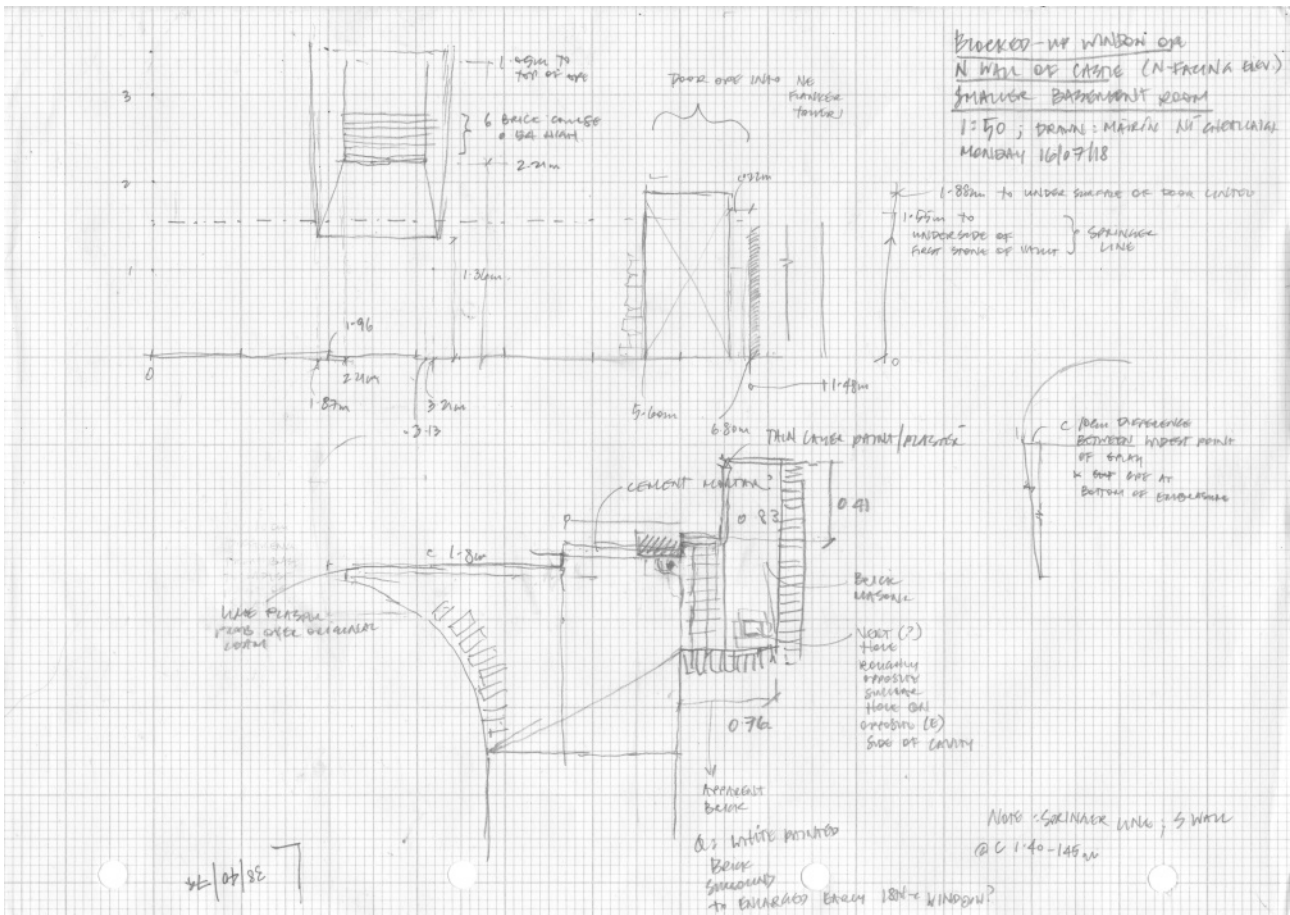 BLOCKED-UP WINDOW OPE
N WALL OF CASTLE (N-FACING ELEV.)
SMALLER BASEMENT ROOM
1:50 ; DRAWN: MÁIRÍN NÍ
MONDAY 16/07/18
TOP OF OPE
6 BRICK COURSE
HIGH
2.21m
DOOR OPE INTO NE
FLANKER
TOWER
3
2
1
0
1.88m TO UNDER SURFACE OF DOOR LINTEL
1.55m TO
UNDERSIDE OF
FIRST STONE OF VAULT
SPRINGER
LINE
0
1.96
2.21m
1.87m
3.21m
3.13
5.60m
6.80m
1.48m
THIN LAYER PAINT/PLASTER
CEMENT MORTAR?
0.83
0.41
c 1.8m
LIME PLASTER
OVER ORIGINAL
BRICK
MASONRY
VENT (?)
HOLE
ROUGHLY
OPPOSITE
SIMILAR
HOLE ON
OPPOSITE (E)
SIDE OF CAVITY
0.76
APPARENT
BRICK
Q: WHITE PAINTED
BRICK
SURROUND
TO ENLARGED EARLY 18th c WINDOW?
c 10cm DIFFERENCE
BETWEEN WIDEST POINT
OF SPLAY
OPE AT
BOTTOM OF EMBRASURE
NOTE: SPRINGER LINE ; S WALL
@ C 1.40-145m